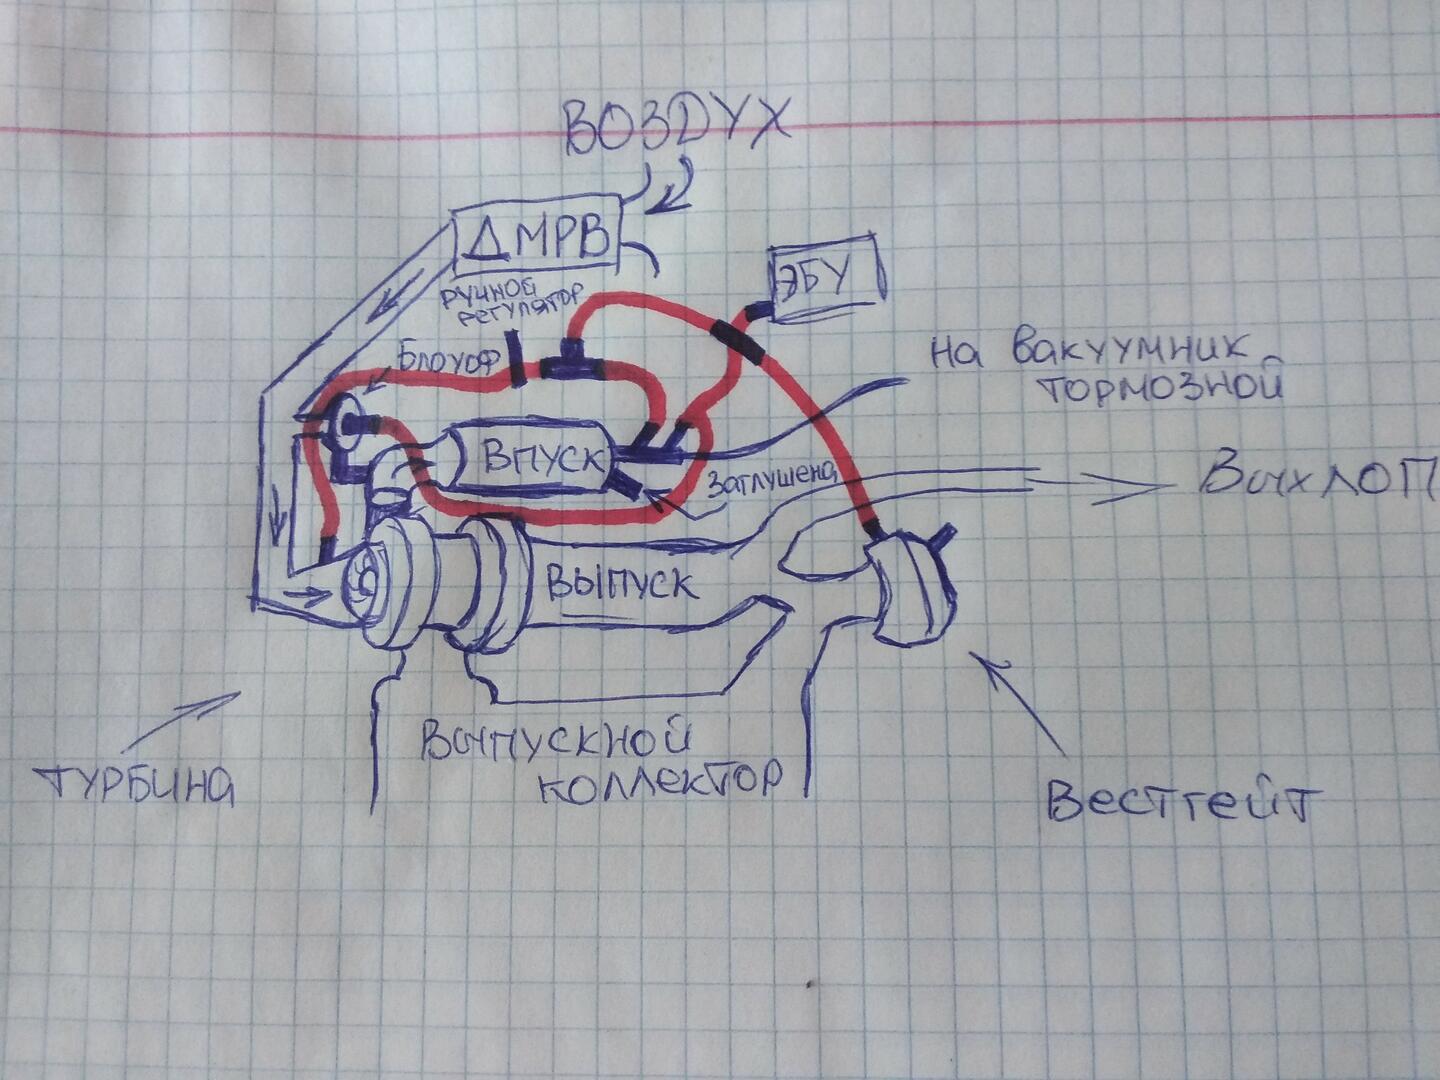 ВОЗДУХ
ДМРВ
ЭБУ
РУЧНОЙ
РЕГУЛЯТОР
БЛОУОФ
НА ВАКУУМНИК
ТОРМОЗНОЙ
ВПУСК
ЗАГЛУШЕНА
ВЫХЛОП
ВЫПУСК
ВЫПУСКНОЙ
КОЛЛЕКТОР
ТУРБИНА
ВЕСТГЕЙТ